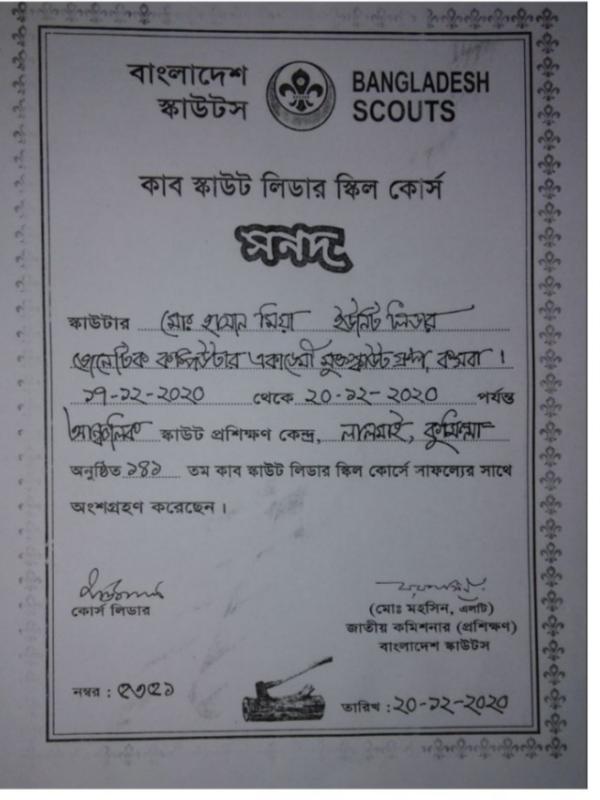 বাংলাদেশ
স্কাউটস
BANGLADESH
SCOUTS
কাব স্কাউট লিডার স্কিল কোর্স
সনদ
স্কাউটার মোঃ হাসান মিয়া ইউনিট লিডার
কম্পিউটার একাডেমী মুক্তস্কাউট গ্রুপ, কসবা।
১৭-১২-২০২০ থেকে ২০-১২-২০২০ পর্যন্ত
আঞ্চলিক স্কাউট প্রশিক্ষণ কেন্দ্র, লালমাই, কুমিল্লা
অনুষ্ঠিত ১৪১ তম কাব স্কাউট লিডার স্কিল কোর্সে সাফল্যের সাথে
অংশগ্রহণ করেছেন।
কোর্স লিডার
(মোঃ মহসিন, এলটি)
জাতীয় কমিশনার (প্রশিক্ষণ)
বাংলাদেশ স্কাউটস
নম্বর : ৫৩৫১
তারিখ : ২০-১২-২০২০